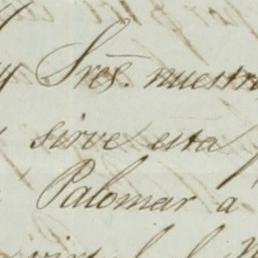 y Sres. nuestro
sirve esta
Palomar á